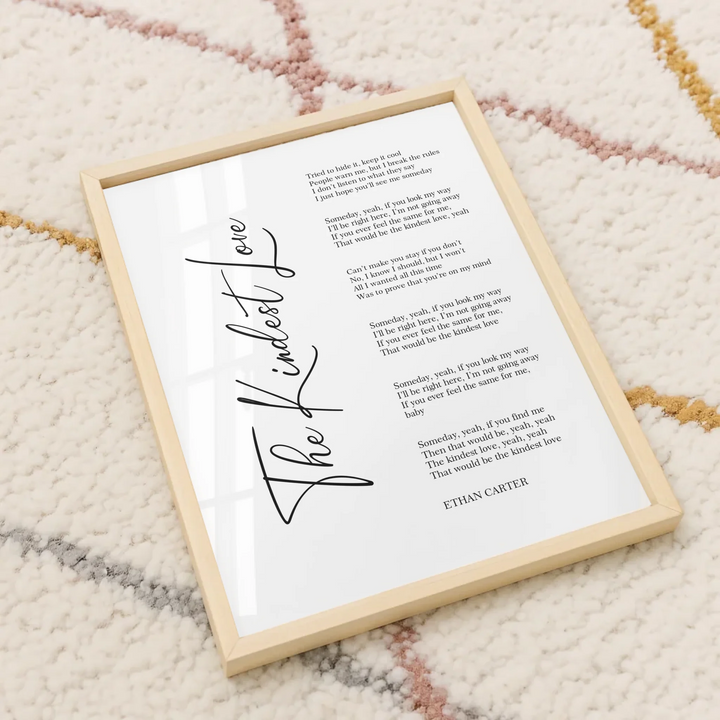 The Kindest Love
Tried to hide it, keep it cool
People warn me, but I break the rules
I don't listen to what they say
I just hope you'll see me someday
Someday, yeah, if you look my way
I'll be right here, I'm not going away
If you ever feel the same for me,
That would be the kindest love, yeah
Can't make you stay if you don't
No, I know I should, but I won't
All I wanted all this time
Was to prove that you're on my mind
Someday, yeah, if you look my way
I'll be right here, I'm not going away
If you ever feel the same for me,
That would be the kindest love
Someday, yeah, if you look my way
I'll be right here, I'm not going away
If you ever feel the same for me,
baby
Someday, yeah, if you find me
Then that would be, yeah, yeah
The kindest love, yeah, yeah
That would be the kindest love
ETHAN CARTER